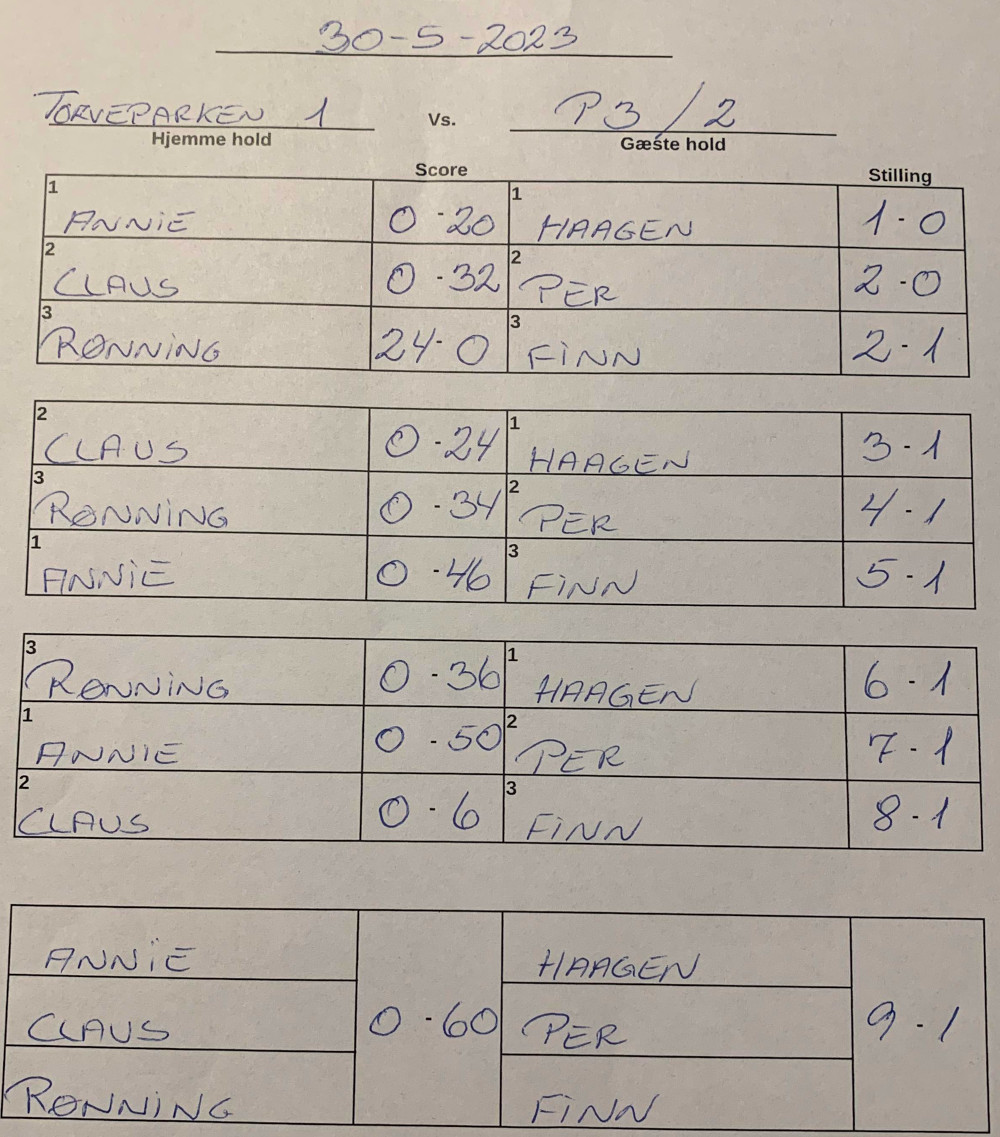 30-5-2023
TORVEPARKEN 1 Vs. P3/2
Hjemme hold Gæste hold
Score Stilling
1 ANNiE 0-20 1 HAAGEN 1-0
2 CLAUS 0-32 2 PER 2-0
3 RØNNiNG 24-0 3 FiNN 2-1
2 CLAUS 0-24 1 HAAGEN 3-1
3 RØNNiNG 0-34 2 PER 4-1
1 ANNiE 0-46 3 FiNN 5-1
3 RØNNiNG 0-36 1 HAAGEN 6-1
1 ANNiE 0-50 2 PER 7-1
2 CLAUS 0-6 3 FiNN 8-1
ANNiE HAAGEN
CLAUS 0-60 PER 9-1
RØNNiNG FiNN